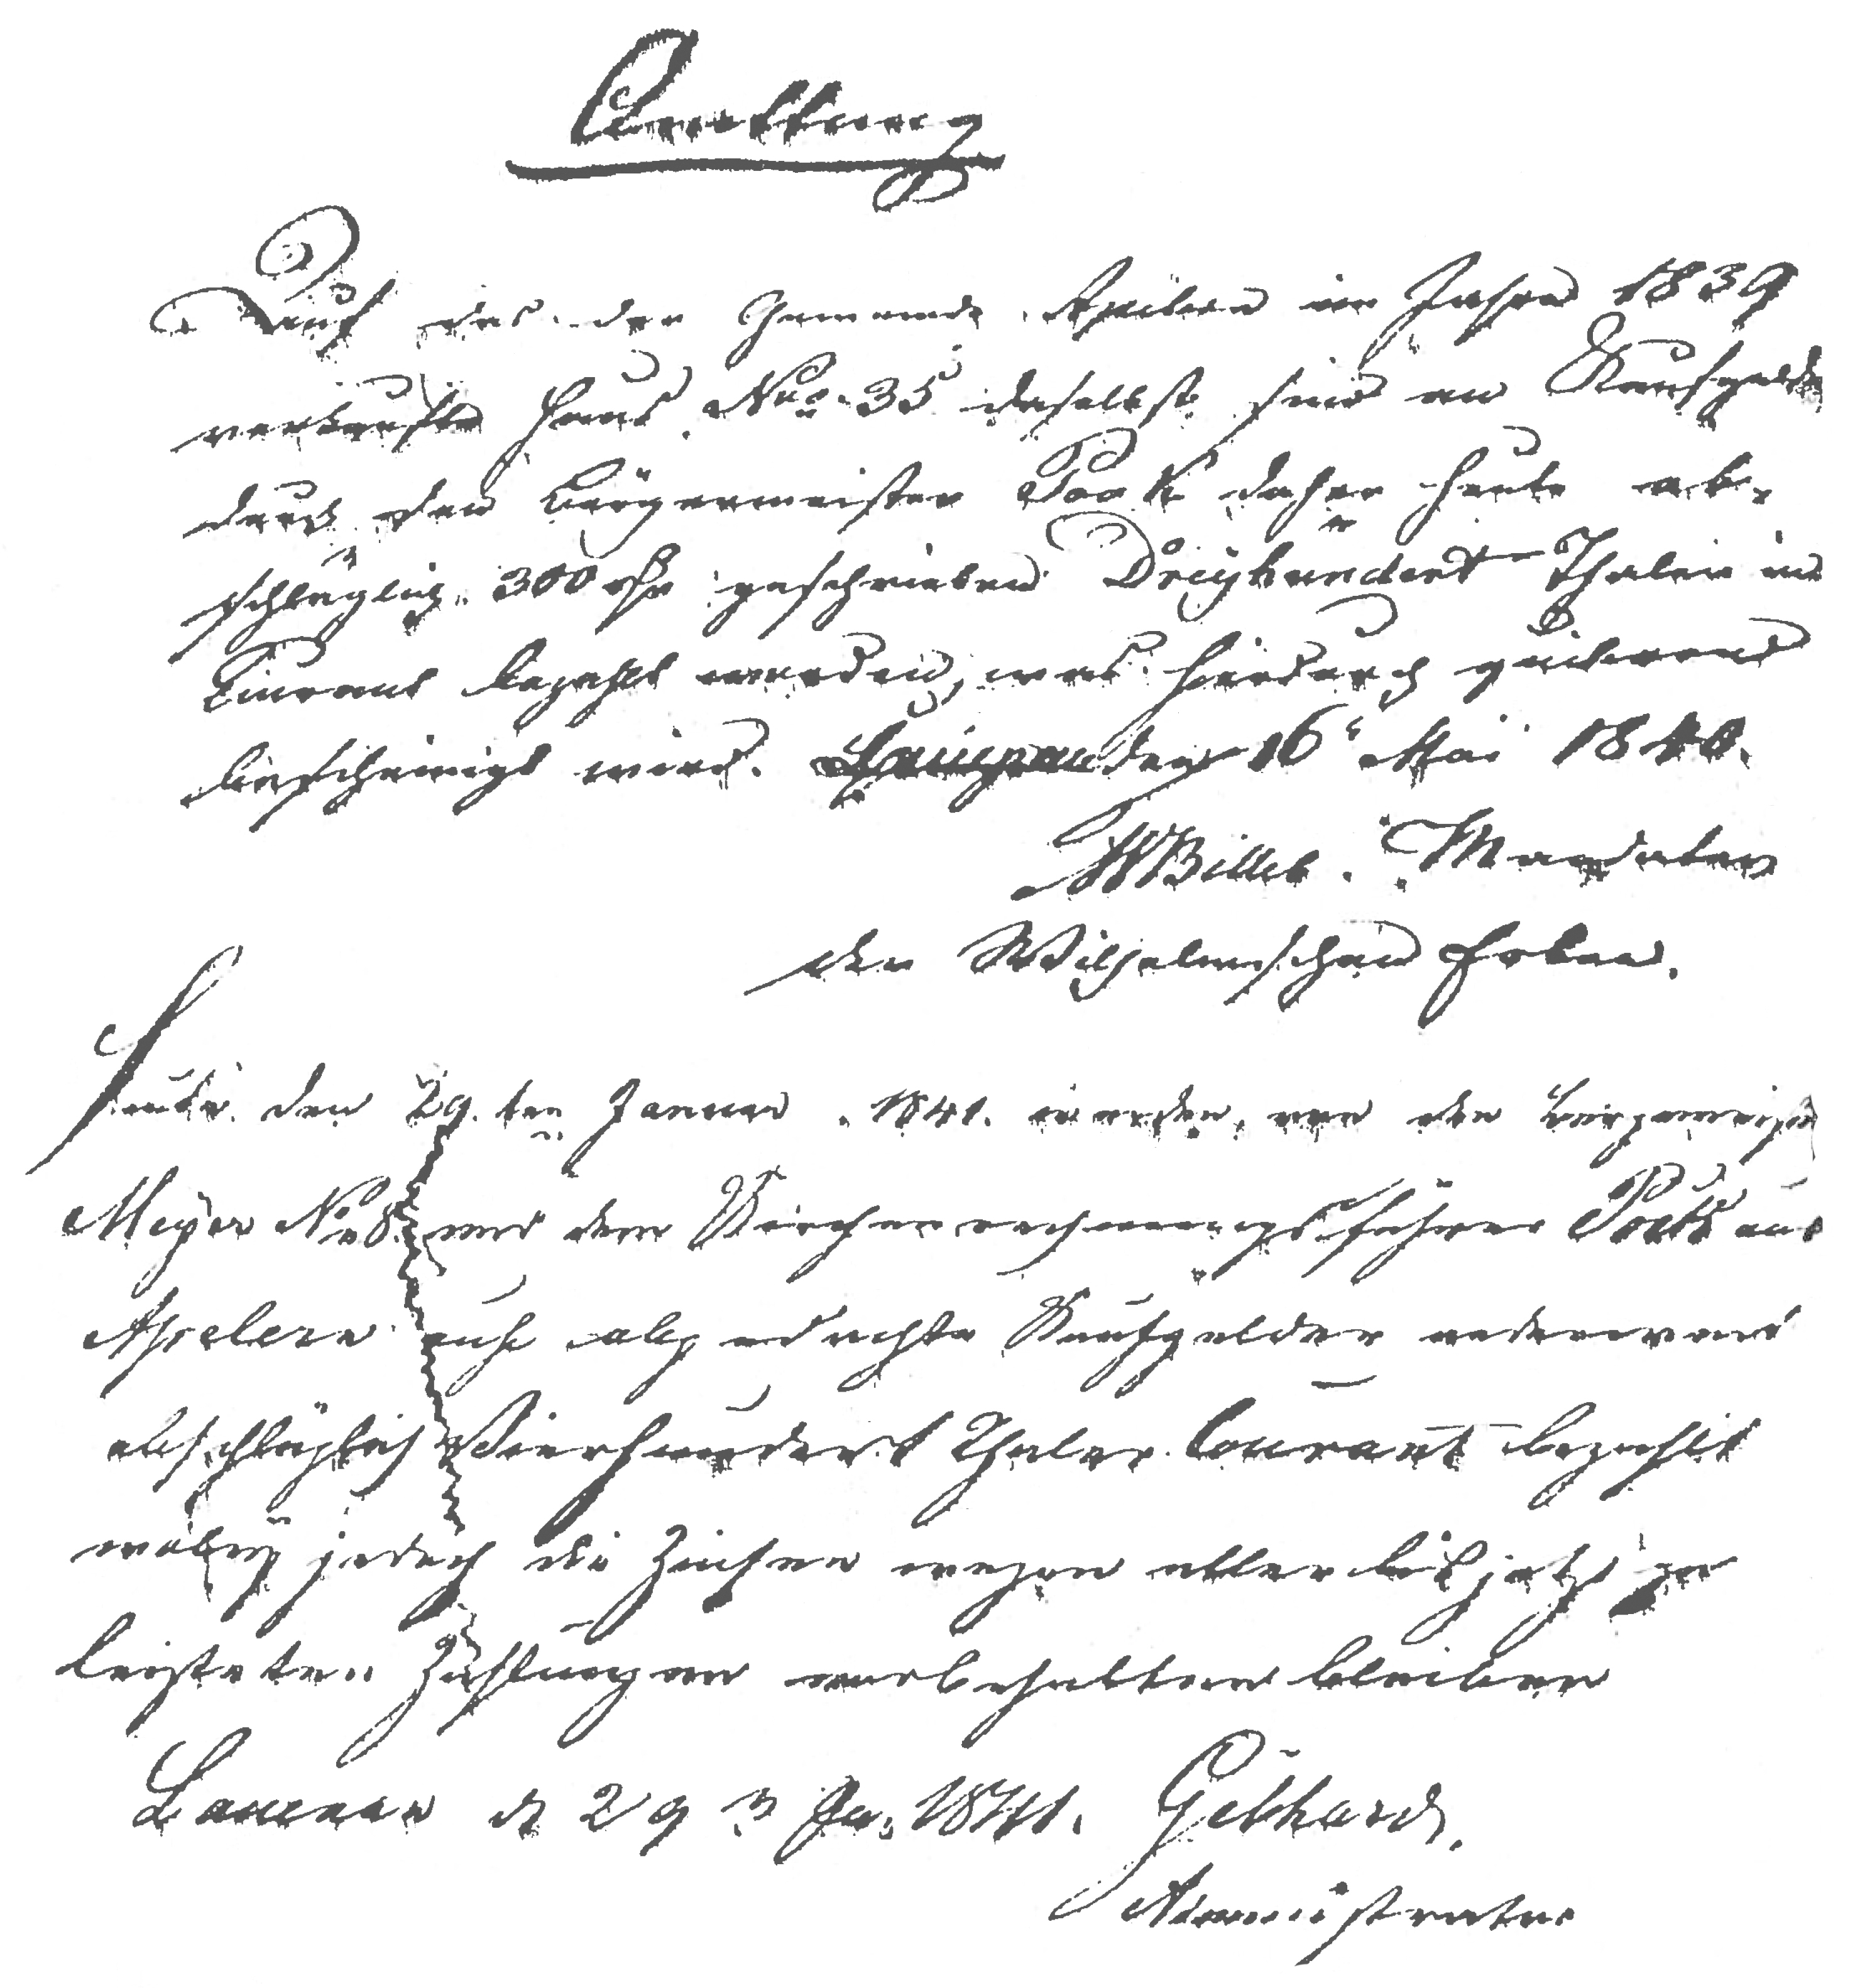 Quittung
Auf das der Gemeinde Apelern im Jahre 1839
verkaufte Haus Nro. 35 daselbst sind an Kaufgelder
durch den Bürgermeister Pook daher heute ab-
schläglich 300 rth geschrieben Dreyhundert Thaler in
Courant bezahlt worden, was hierdurch
bescheinigt wird. den 16t Mai 1840.
Billeb. Mandatar
der Wilhelmschen Erben.
Heute den 29.ten Januar 1841. wurden von den Bürgermeister
Meyer No 8. und dem Kirchenrechnungsführer aus
Apelern auf obgedachte Kaufgelder anderweit
abschläglich Vierhundert Thaler Courant bezahlt
wobey jedoch die Zinsen wegen aller bis jetzt ge
leisteten Zahlungen vorbehalten bleiben
Lauenau d 29 Ja. 1841. Gebhard.
Administrator